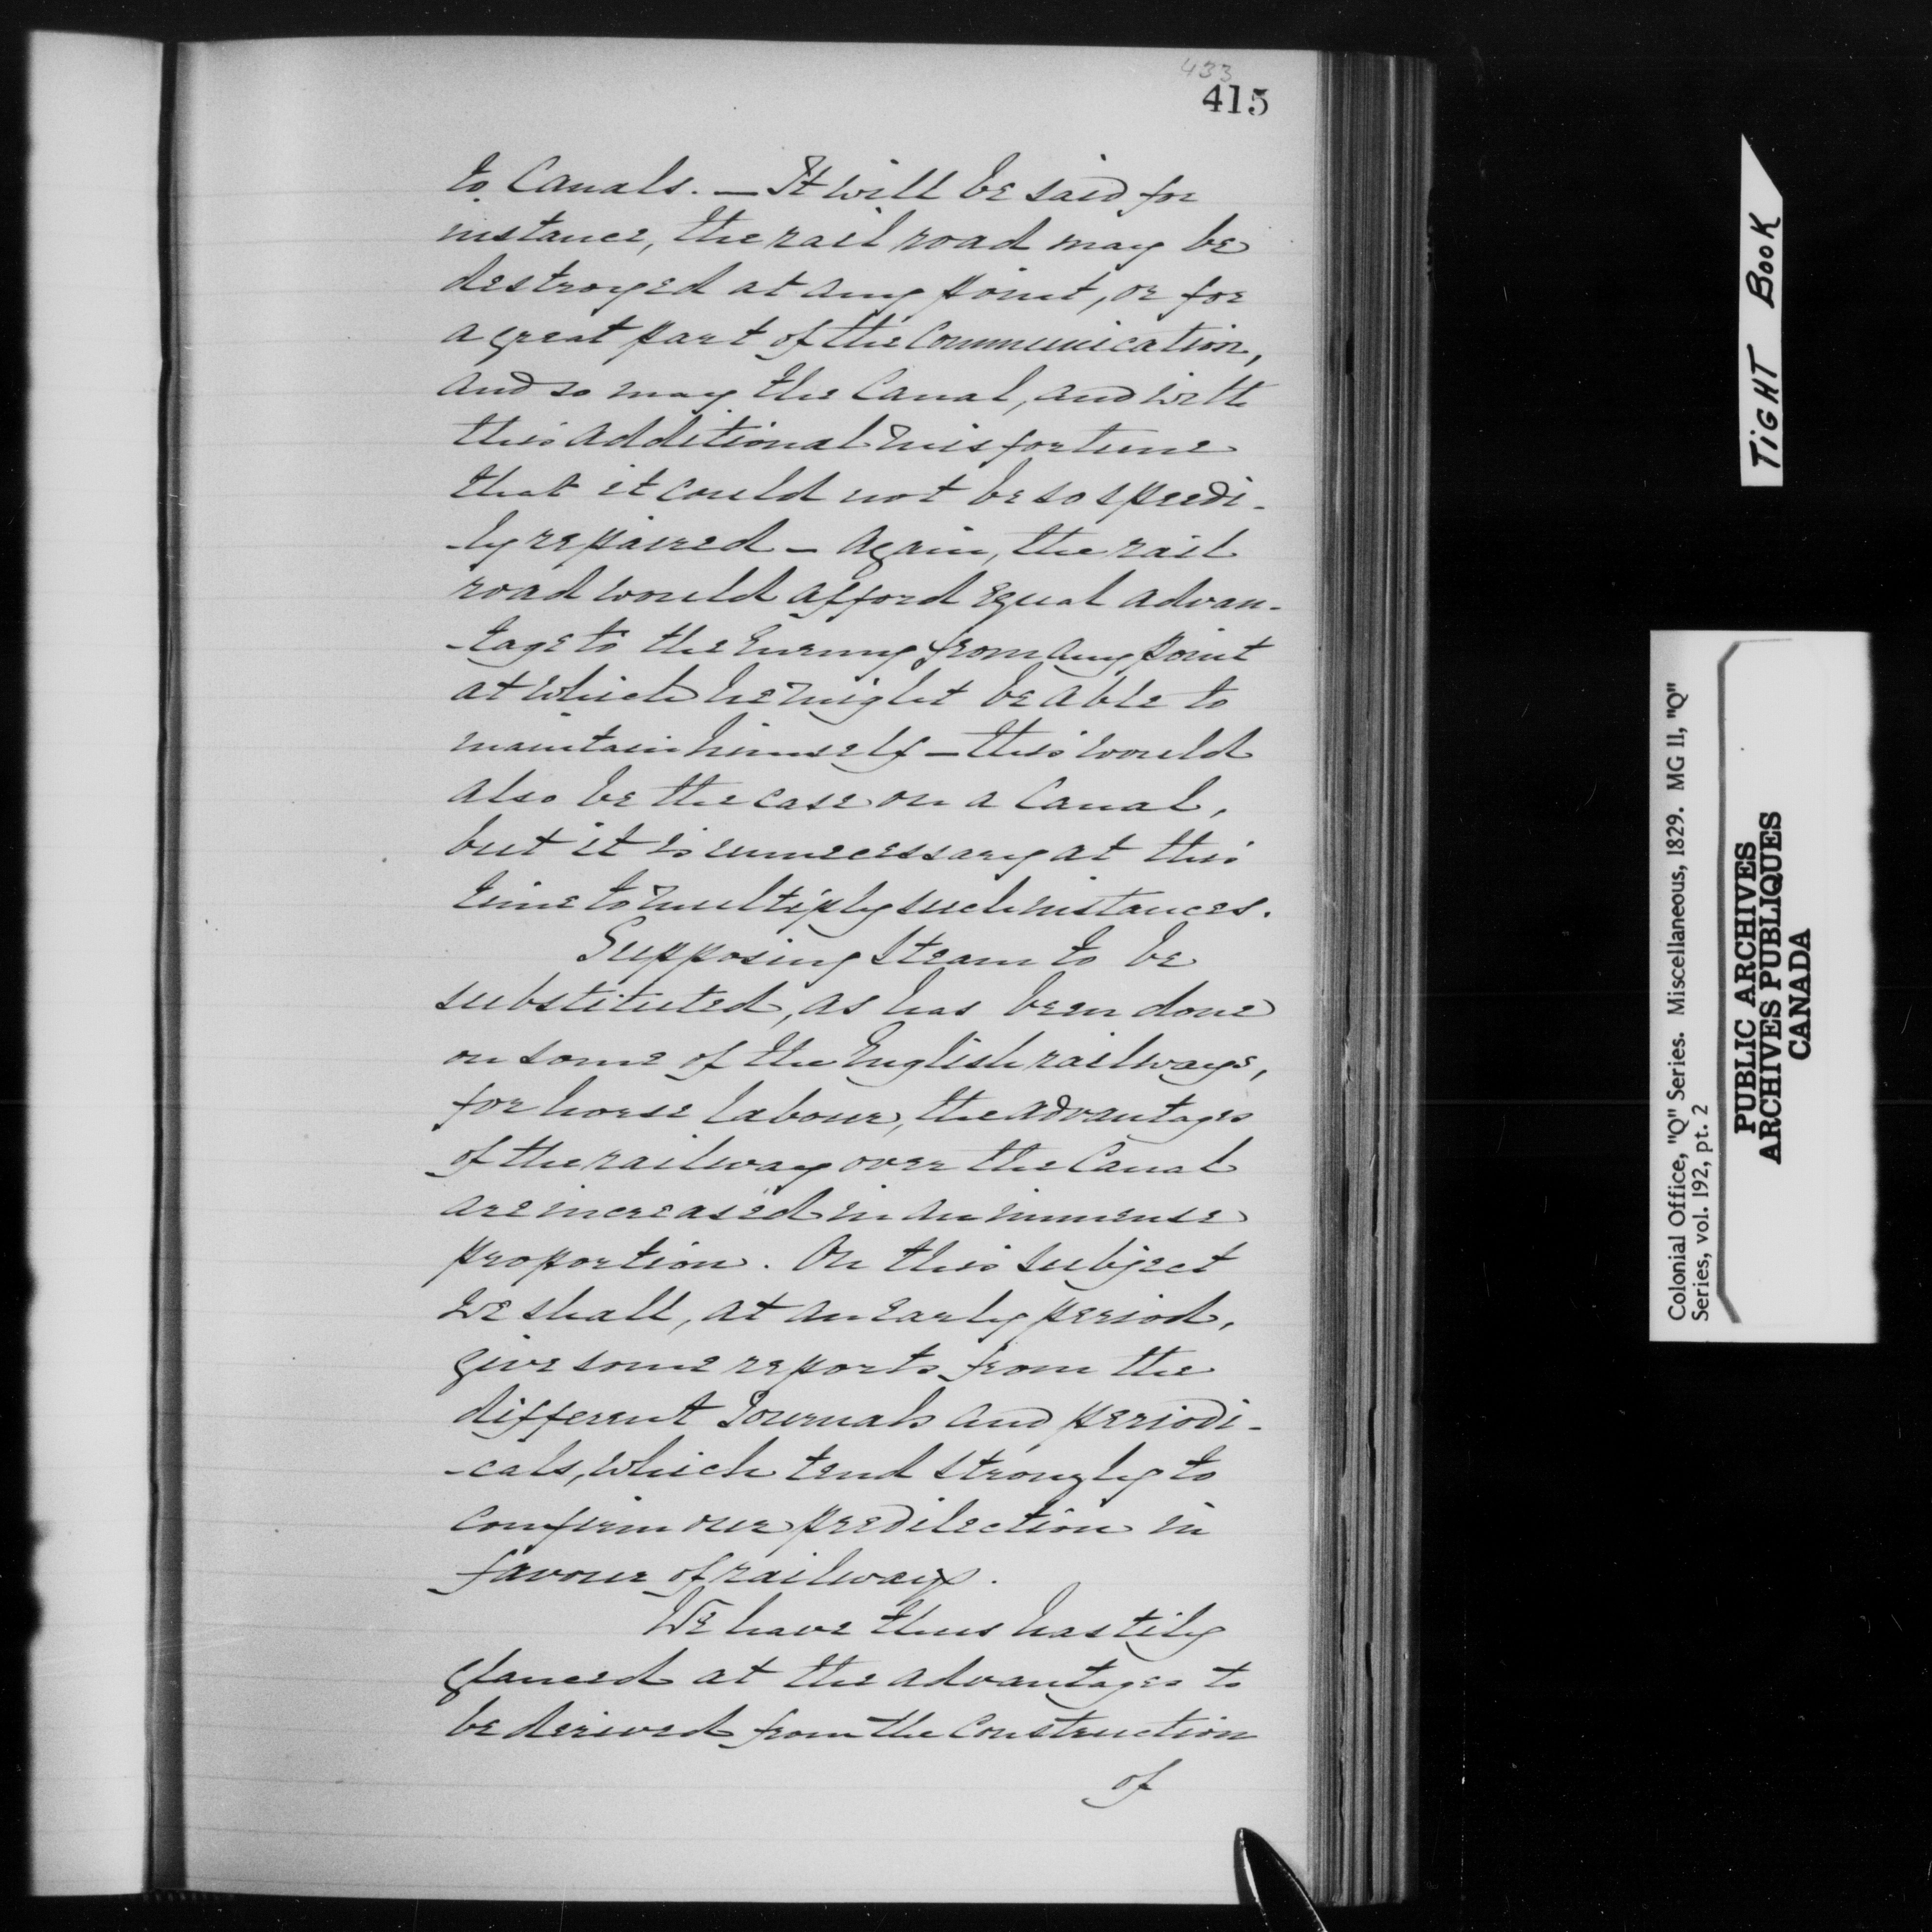 433
415
to Canals. — It will be said for
instance, the rail road may be
destroyed at any point, or for
a great part of the Communication,
and so may the Canal, and with
this additional misfortune
that it could not be so speedi-
-ly repaired — again, the rail
road would afford equal advan-
-tage to the Enemy from any point
at which he might be able to
maintain himself — this would
also be the case on a Canal,
but it is unnecessary at this
time to multiply such instances.
Supposing Steam to be
substituted, as has been done
on some of the English railways,
for horse labour, the advantages
of the railway over the Canal
are increased in an immense
proportion. On this subject
we shall, at an early period,
give some reports from the
different Journals and periodi-
-cals, which tend strongly to
confirm our predilection in
favour of railways.
We have thus hastily
glanced at the advantages to
be derived from the construction
of
TiGHT BOOK
Colonial Office, "Q" Series. Miscellaneous, 1829. MG 11, "Q"
Series, vol. 192, pt. 2
PUBLIC ARCHIVES
ARCHIVES PUBLIQUES
CANADA